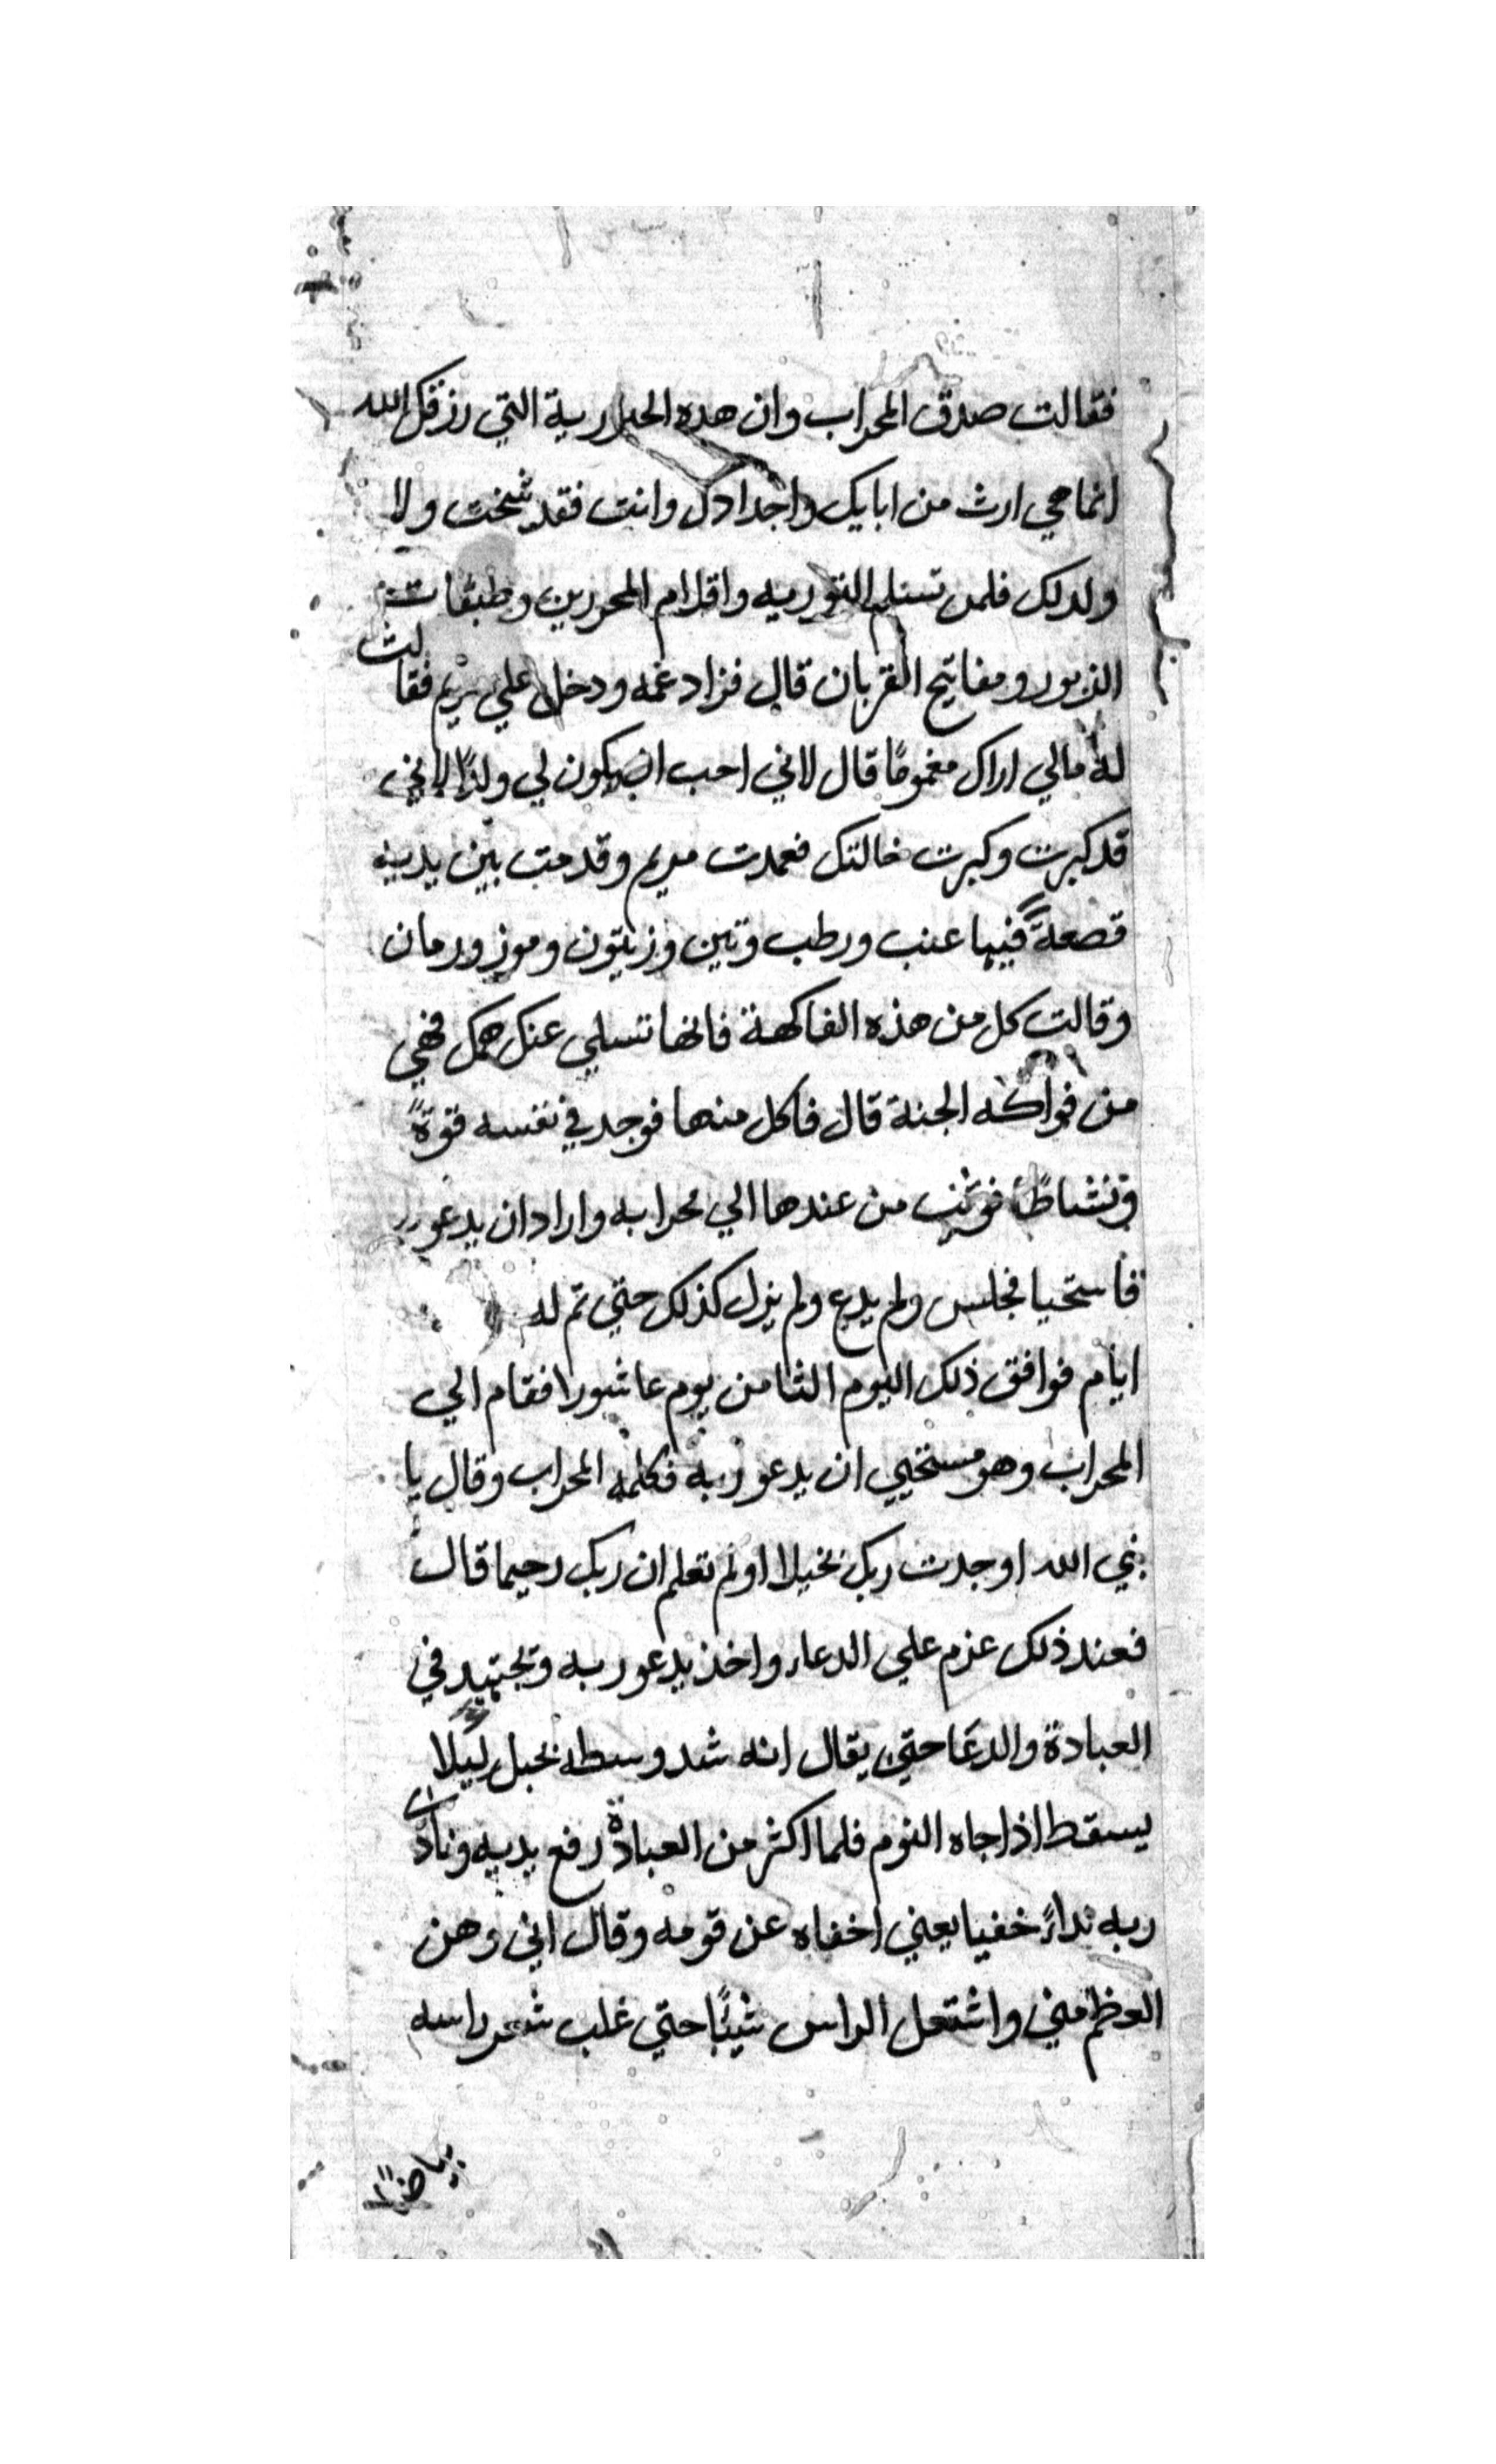 فقالت صدق المحراب وان هده الحبارية التي رزقك الله
انما هي ارث من ابايك واجدادك وانت فقد شخت ولا
ولد لك فلمن تسلم التوريه واقلام المحررين وطبقات
الزبور ومفاتيح القربان قال فزاد غمه ودخل علي مريم فقالت
له مالي اراك مغمومًا قال لاني احب ان يكون لي ولدًا لاني
قد كبرت وكبرت خالتك فعمدت مريم وقدمت بين يديه
قصعةً فيها عنب ورطب وتين وزيتون وموز ورمان
وقالت كل من هذه الفاكهة فانها تسلي عنك همك فهي
من فواكه الجنة قال فاكل منها فوجد في نفسه قوةً
ونشاطًا فوثب من عندها الي محرابه واراد ان يدعو ربه
فاستحيا فجلس ولم يدع ولم يزل كذلك حتي تم له
ايام فوافق ذلك اليوم الثامن يوم عاشورا فقام الي
المحراب وهو مستحيي ان يدعو ربه فكلمه المحراب وقال يا
نبي الله اوجدت ربك بخيلا اولم تعلم ان ربك رحيما قال
فعند ذلك عزم علي الدعاء واخذ يدعو ربه ويجتهد في
العبادة والدعا حتي يقال انه شد وسطه بحبل ليلا
يسقط اذا جاه النوم فلما اكثر من العبادة رفع يديه ونادي
ربه نداءً خفيا يعني اخفاه عن قومه وقال اني وهن
العظم مني واشتعل الراس شيبًا حتي غلب شعر راسه
بياضًا